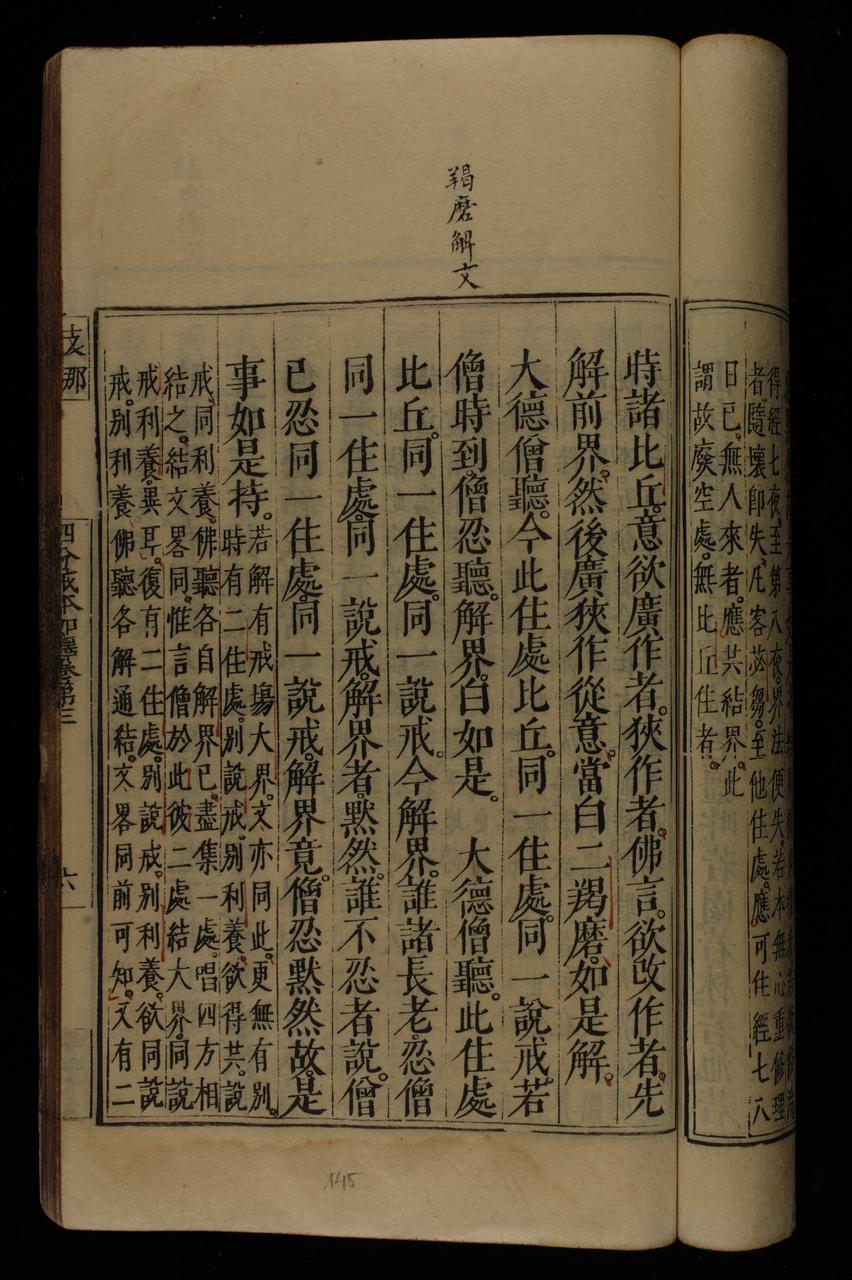 得經七夜。至第八夜。界法便失。若本無心重修理
者。隨壞即失。凡客苾芻。至他住處。應可住經七八
日已。無人來者。應共結界。此
謂故廢空處。無比丘住者。
羯磨解文
時諸比丘。意欲廣作者。狹作者。佛言。欲改作者。先
解前界。然後廣狹作從意。當白二羯磨。如是解。
大德僧聽。今此住處比丘。同一住處。同一說戒。若
僧時到僧忍聽。解界。白如是。 大德僧聽。此住處
比丘。同一住處。同一說戒。今解界。誰諸長老。忍僧
同一住處。同一說戒。解界者。默然。誰不忍者說。僧
已忍同一住處。同一說戒。解界竟。僧忍默然故。是
事如是持。
若解有戒場大界。文亦同此。更無有別。
時有二住處。別說戒。別利養。欲得共。說
戒。同利養。佛聽各自解界已。盡集一處。唱四方相
結之。結文畧同。惟言僧於此彼二處結大界。同說
戒利養。異耳。復有二住處。別說戒。別利養。欲同說
戒。別利養。佛聽各解通結。文畧同前可知。又有二
支那
四分戒本如釋卷第三
六
145